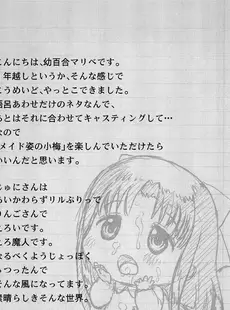 こんにちは、幼百合マリベです。
年越しというか、そんな感じで
こうめいど、やっとこできました。
呂あわせだけのネタなんで、
あとはそれに合わせてキャスティングして…
なので
メイド姿の小梅」を楽しんでいただけたら
いいんだと思います。
じゅにさんは
あいかわらずリルぷりって
りんごさんで
ころいです。
ころ魔人です。
なるべくようじょっぽく
らつったんで
そんな風になってます。
晴らしきそんな世界。